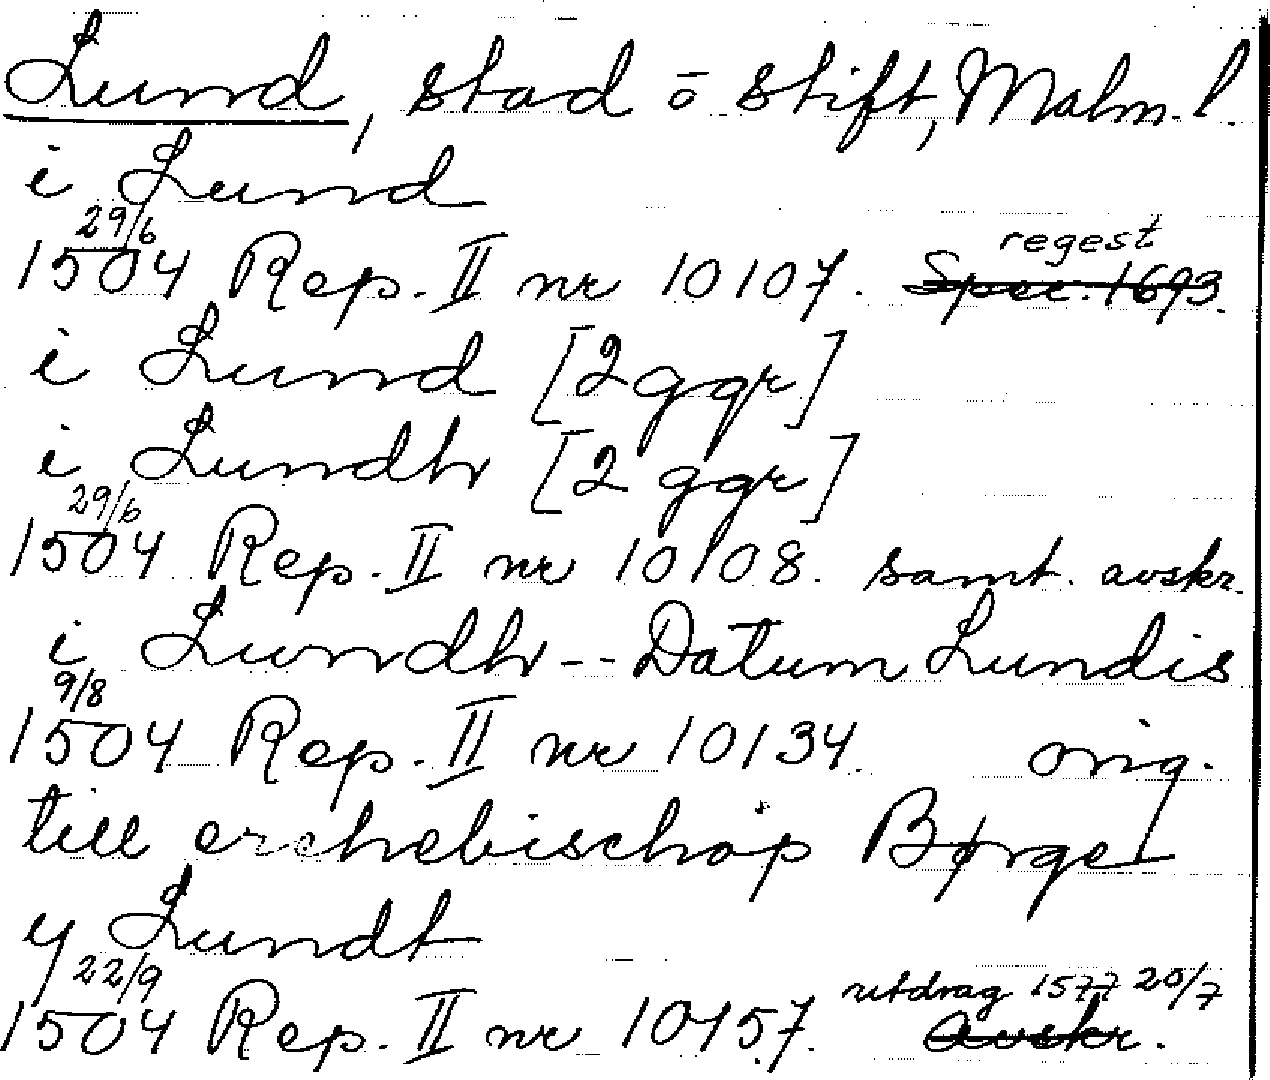 Lund, stad o stift, Malm. l.
i Lund
29/6
1504 Rep. II nr 10107. regest Spec. 1693.
i Lund [2 ggr]
i Lundh [2 ggr]
29/6
1504 Rep. II nr 10108. samt. avskr.
i Lwndh -- Datum Lundis
9/8
1504 Rep. II nr 10134. orig.
till erchebischop Børge
y Lundt
22/9 utdrag 1577 20/7
1504 Rep. II nr 10157. Avskr.